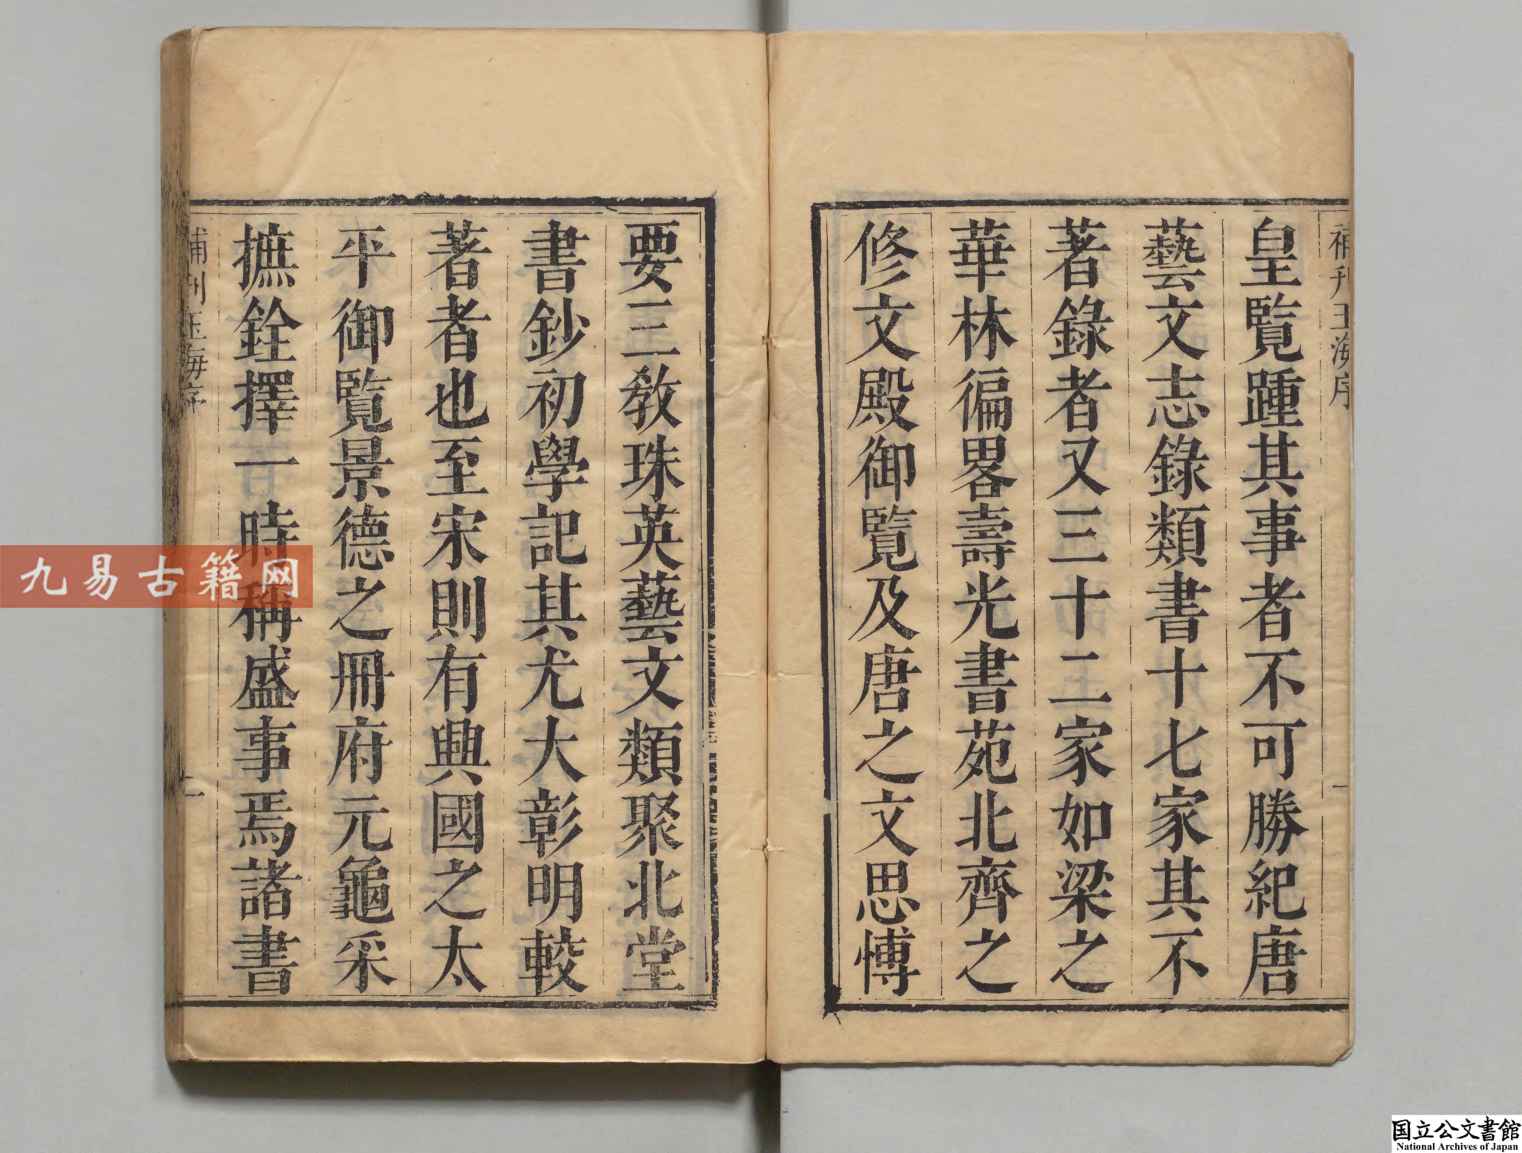 補刋玉海序
皇覽踵其事者不可勝紀唐
藝文志錄類書十七家其不
著錄者又三十二家如梁之
華林徧畧壽光書苑北齊之
修文殿御覽及唐之文思愽
一
要三敎珠英藝文類聚北堂
書鈔初學記其尤大彰明較
著者也至宋則有興國之太
平御覽景德之冊府元龜采
摭銓擇一時稱盛事焉諸書
補刋玉海序
九易古籍网
国立公文書館
National Archives of Japan